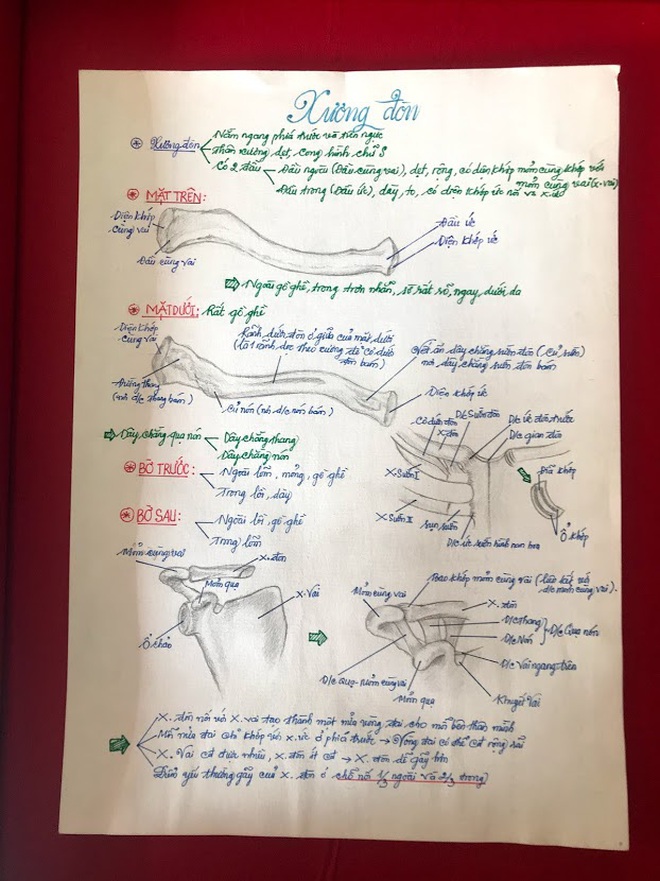 Xương đòn
Xương đòn
Nằm ngang phía trước và trên ngực
Thân xương dẹt, cong hình chữ S
Có 2 đầu
Đầu ngoài (Đầu cùng vai), dẹt, rộng, có diện khớp mỏm cùng khớp với
mỏm cùng vai (x. vai)
Đầu trong (Đầu ức), dày, to, có diện khớp ức nối vs x. ức
MẶT TRÊN:
Diện khớp
cùng vai
Đầu cùng vai
Đầu ức
Diện khớp ức
Ngoài gồ ghề, trong trơn nhẵn, sờ rất rõ, ngay dưới da
MẶT DƯỚI: Rất gồ ghề
Diện khớp
cùng vai
Rãnh dưới đòn ở giữa của mặt dưới
(là 1 rãnh dọc theo xương để cơ dưới
đòn bám)
Vết ấn dây chằng sườn đòn (củ sườn)
nơi dây chằng sườn đòn bám
Đường thang
(nơi d/c thang bám)
Củ nón (nơi d/c nón bám)
Diện khớp ức
Dây chằng quạ nón
Dây chằng thang
Dây chằng nón
Cơ dưới đòn
X. đòn
D/c Sườn đòn
D/c ức đòn trước
D/c gian đòn
X. Sườn I
X. Sườn II
Sụn sườn
D/c ức sườn hình nan hoa
Đĩa khớp
Ổ khớp
BỜ TRƯỚC:
Ngoài lõm, mỏng, gồ ghề
Trong lồi, dày
BỜ SAU:
Ngoài lồi, gồ ghề
Trong lõm
Mỏm cùng vai
X. đòn
Mỏm quạ
X. Vai
Ổ chảo
Mỏm cùng vai
Bao khớp mỏm cùng vai (liên kết với
d/c mỏm cùng vai)
X. đòn
D/c Thang
D/c Nón
D/c Quạ nón
D/c Vai ngang trên
D/c Quạ - Mỏm cùng vai
Mỏm quạ
Khuyết Vai
X. đòn nối với X. vai tạo thành một nửa vòng đai cho mỗi bên thân mình
Mỗi nửa đai chỉ khớp với x. ức ở phía trước → Vòng đai có thể cử động rộng rãi
X. Vai cử động nhiều, x. đòn ít cđ → X. đòn dễ gãy hơn
Điểm yếu thường gãy của x. đòn ở chỗ nối 1/3 ngoài và 2/3 trong